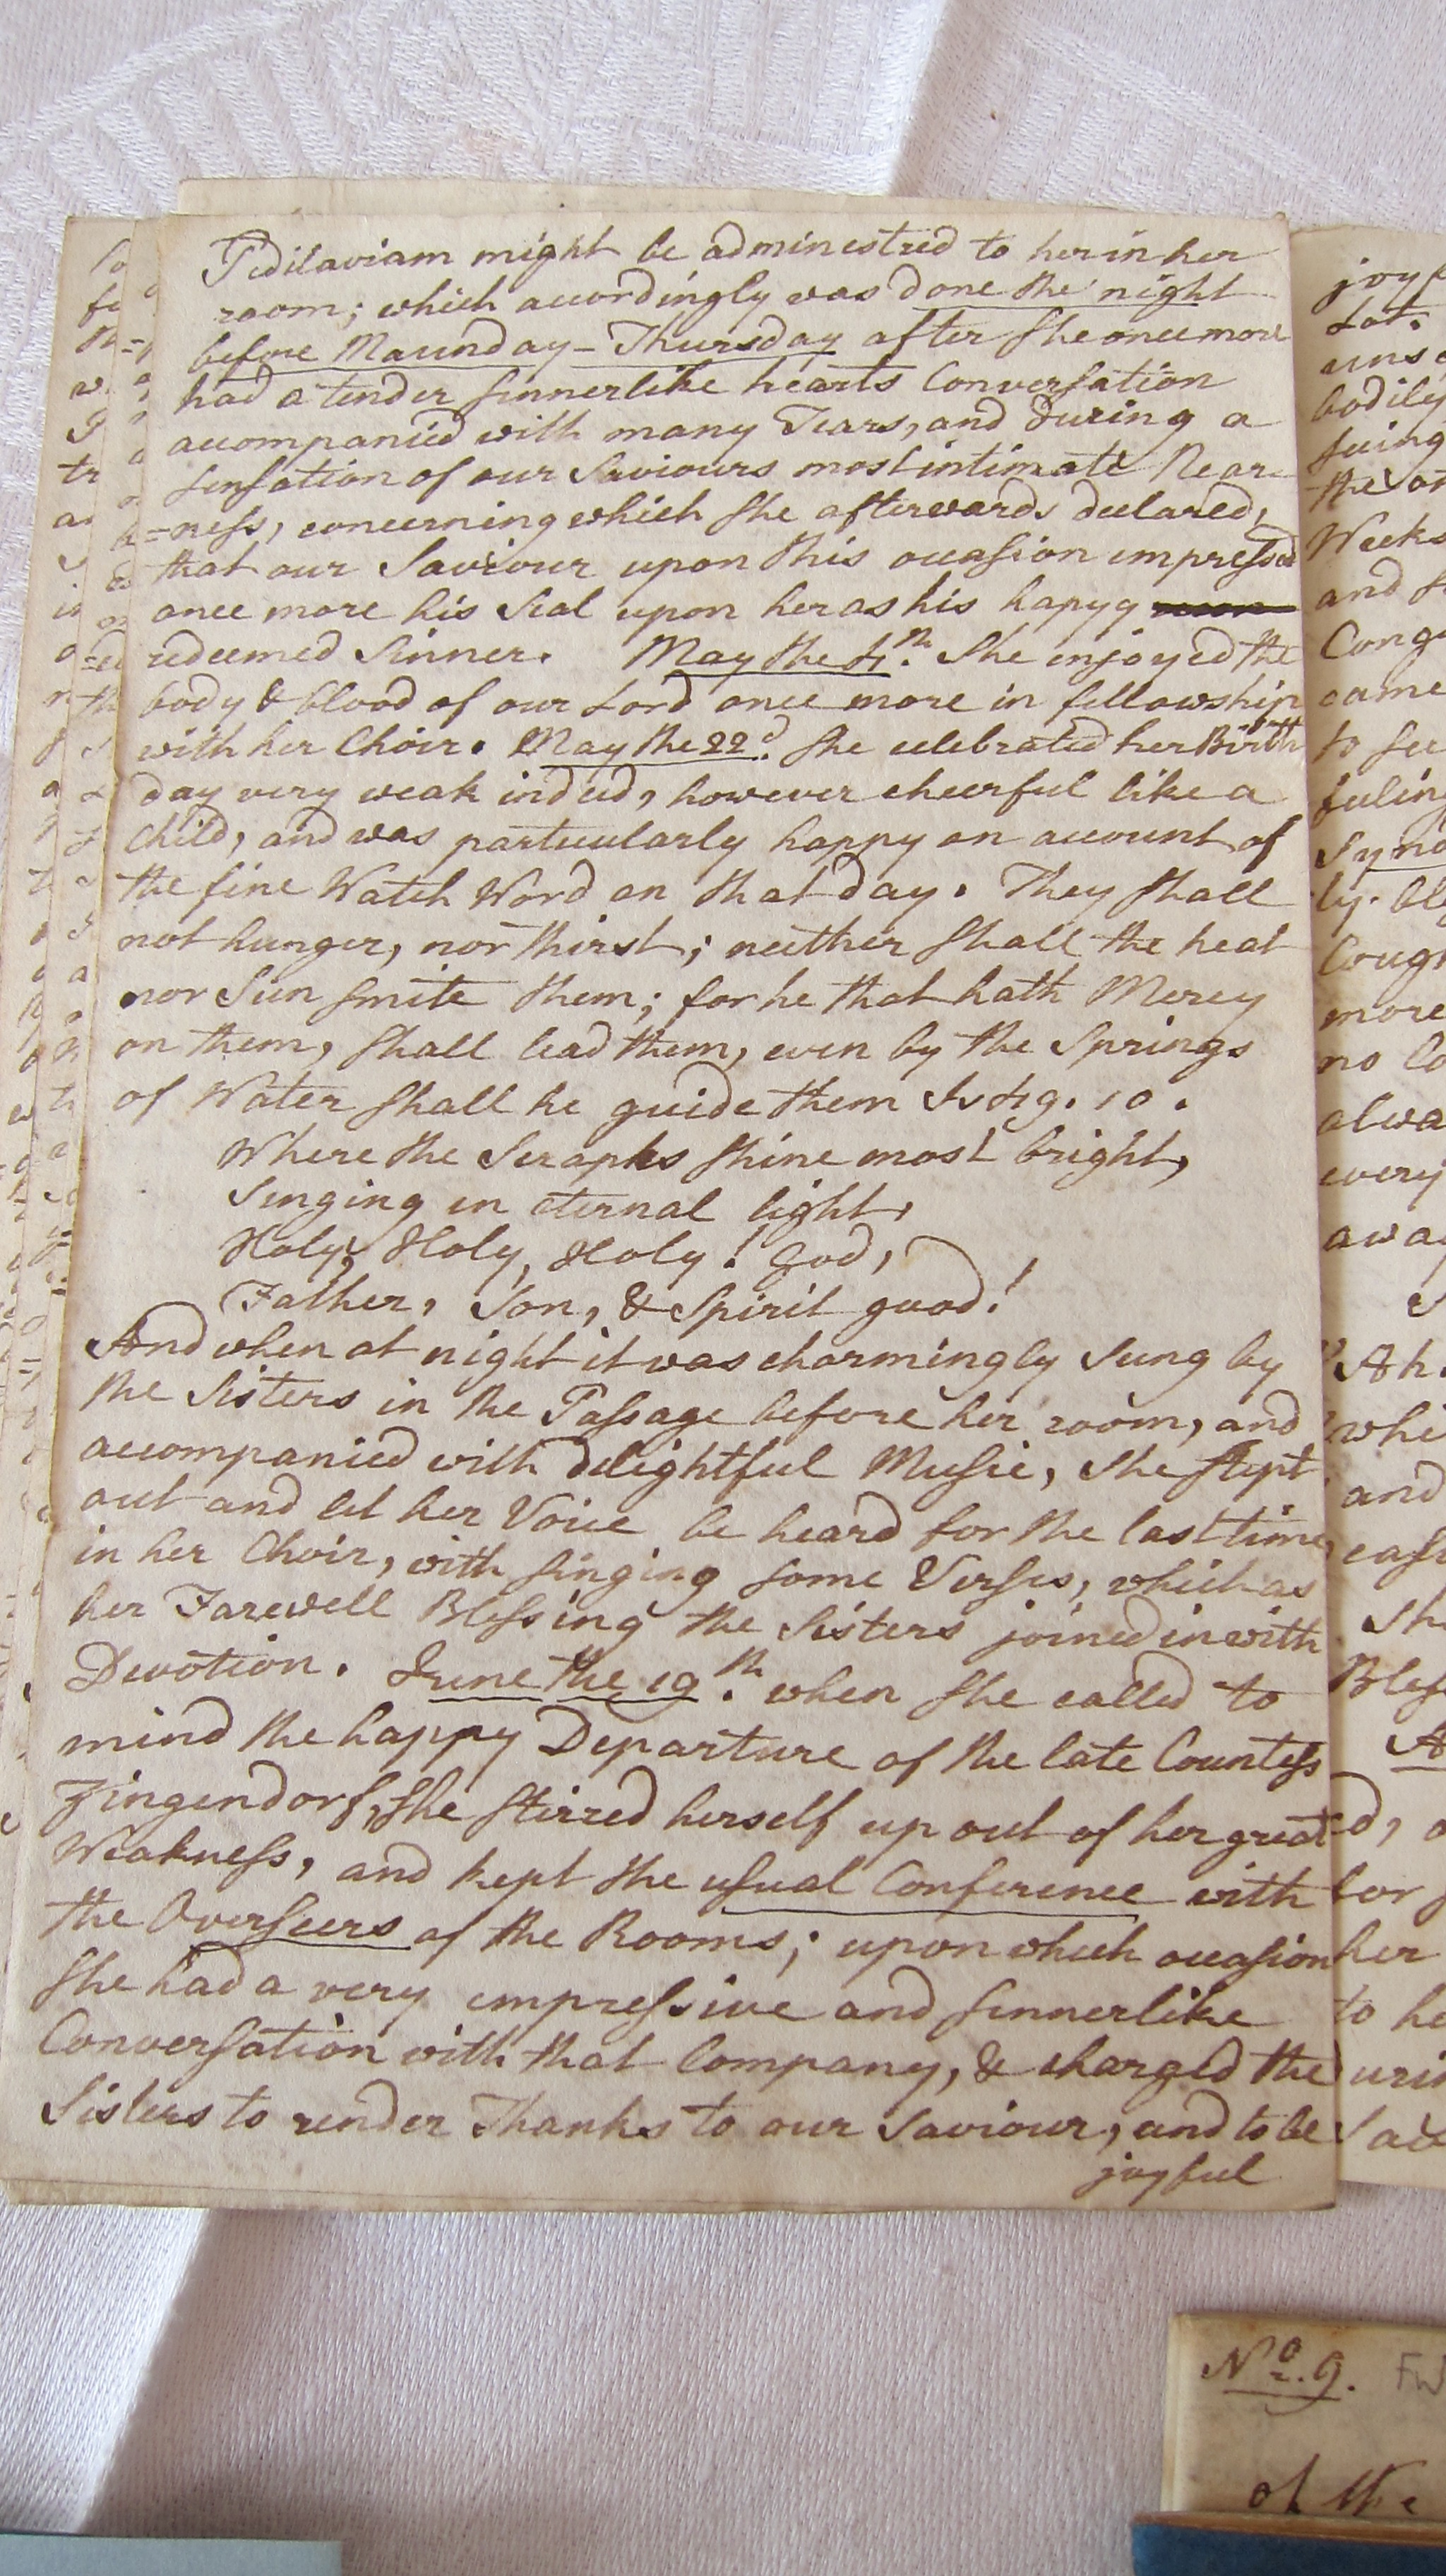 Pedilaviam might be adminestred to her in her
room; which accordingly was done the night
before Maunday-Thursday after she once more
had a tender sinnerlike hearts Conversation
accompanied with many Tears, and during a
sensation of our Saviours most intimate Near-
=ness, concerning which she afterwards declared,
that our Saviour upon this occasion impressed
once more his Seal upon her as his hapyy
redeemed Sinner. May the 4th. She enjoyed the
body & blood of our Lord once more in fellowship
with her Choir. May the 22d. she celebrated her Birth
day very weak indeed, however cheerful like a
Child, and was particularly happy on account of
the fine Watch Word on that day. They shall
not hunger, nor thirst; neither shall the heat
nor Sun smite them; for he that hath Mercy
on them, shall lead them, even by the Springs
of Water shall he guide them Is 49. 10.
Where the Seraphs shine most bright,
Singing in eternal light,
Holy, Holy, Holy! God,
Father, Son, & Spirit good!
And when at night it was charmingly sung by
the Sisters in the Passage before her room, and
accompanied with delightful Music, she stept
out and let her Voice be heard for the last time,
in her Choir, with singing some Verses, which as
her Farewell Blessing the Sisters joined in with
Devotion. June the 19th. when she called to
mind the happy Departure of the late Countess
Zingendorf, she stirred herself up out of her great
Weakness, and kept the usual Conference with
the Overseers of the Rooms; upon which occasion
she had a very impressive and sinnerlike
Conversation with that Company, & charged the
Sisters to render Thanks to our Saviour, and to be
joyful
Weeks
and
came
to see
more
no
every
and
her
No. 9.
of the